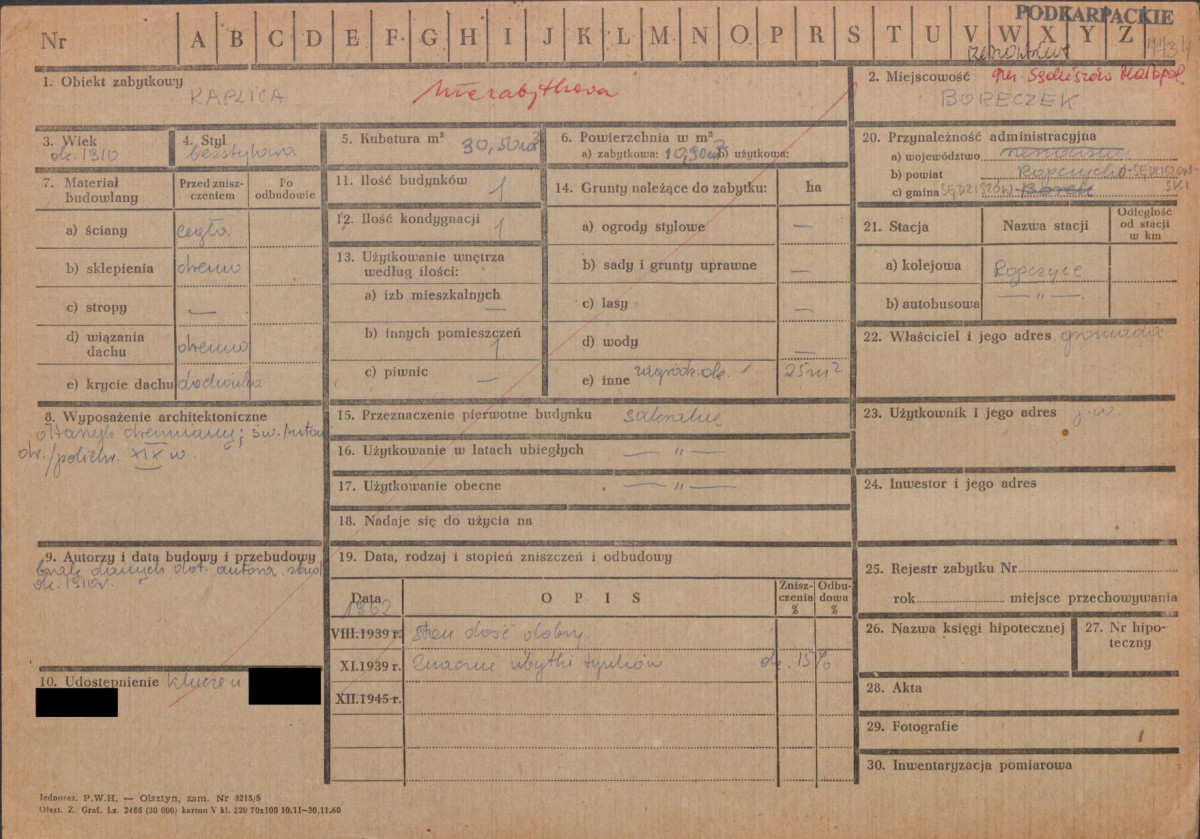 PODKARPACKIE
Nr A B C D E F G H I J K L M N O P R S T U V W X Y Z
1. Obiekt zabytkowy
KAPLICA
Niezabytkowa
2. Miejscowość gm. Sędziszów Małopol.
BORECZEK
3. Wiek
ok. 1910
4. Styl
bezstylowa
5. Kubatura m³ 30,50 m³
6. Powierzchnia w m²
a) zabytkowa: 10,90 m² b) użytkowa:
20. Przynależność administracyjna
a) województwo
b) powiat Ropczycko-SĘDZISZOWSKI
c) gmina SĘDZISZÓW Borek
7. Materiał budowlany
Przed zniszczeniem
Po odbudowie
a) ściany cegła
b) sklepienia drewno
c) stropy —
d) wiązania dachu drewno
e) krycie dachu dachówka
11. Ilość budynków 1
12. Ilość kondygnacji 1
13. Użytkowanie wnętrza według ilości:
a) izb mieszkalnych —
b) innych pomieszczeń 1
c) piwnic —
14. Grunty należące do zabytku: ha
a) ogrody stylowe —
b) sady i grunty uprawne —
c) lasy —
d) wody —
e) inne ok. 25 m²
21. Stacja
Nazwa stacji
Odległość od stacji w km
a) kolejowa Ropczyce
b) autobusowa — „ —
22. Właściciel i jego adres gromada
8. Wyposażenie architektoniczne
drewniany; św. Antoni
dr./polichr. XIX w.
15. Przeznaczenie pierwotne budynku sakralne
16. Użytkowanie w latach ubiegłych — „ —
17. Użytkowanie obecne — „ —
18. Nadaje się do użycia na
23. Użytkownik i jego adres j.w.
24. Inwestor i jego adres
9. Autorzy i data budowy i przebudowy
brak danych dot. autora, zbud.
ok. 1910 r.
19. Data, rodzaj i stopień zniszczeń i odbudowy
Data
O P I S
Zniszczenia %
Odbudowa %
1962
VIII.1939 r. Stan dość dobry.
XI.1939 r. Znaczne ubytki tynków ok. 15%
XII.1945 r.
25. Rejestr zabytku Nr
rok miejsce przechowywania
26. Nazwa księgi hipotecznej
27. Nr hipoteczny
10. Udostępnienie klucze u
28. Akta
29. Fotografie 1
30. Inwentaryzacja pomiarowa
Jednoraz. P.W.H. — Olsztyn, zam. Nr 3215/S
Olszt. Z. Graf. Lz. 2485 (30 000) karton V kl. 220 70x100 10.11—30.11.60